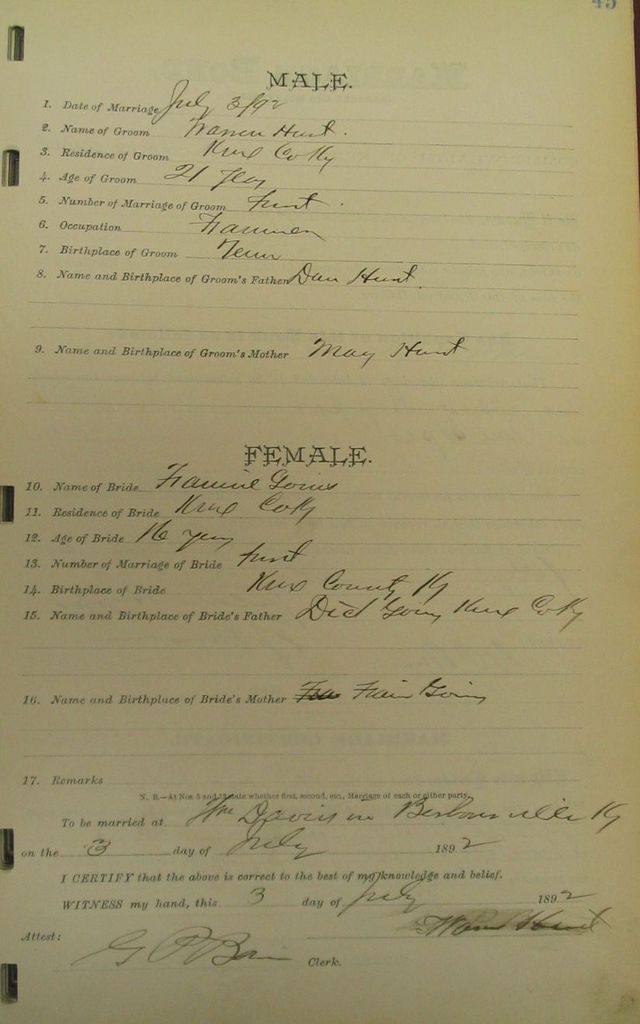 45
MALE.
1. Date of Marriage July 3/92
2. Name of Groom Warren Hunt.
3. Residence of Groom Knox Co Ky
4. Age of Groom 21 years
5. Number of Marriage of Groom first.
6. Occupation Farmer
7. Birthplace of Groom Tenn
8. Name and Birthplace of Groom's Father Dan Hunt.
9. Name and Birthplace of Groom's Mother May Hunt
FEMALE.
10. Name of Bride Fannie Goins
11. Residence of Bride Knox Co Ky
12. Age of Bride 16 years
13. Number of Marriage of Bride first
14. Birthplace of Bride Knox County Ky
15. Name and Birthplace of Bride's Father Goins Knox Co Ky
16. Name and Birthplace of Bride's Mother Goins
17. Remarks
N. B.—At Nos 5 and 13 state whether first, second, etc., Marriage of each or either party.
To be married at Wm Davis in Barbourville Ky
on the 3 day of July 1892
I CERTIFY that the above is correct to the best of my knowledge and belief.
WITNESS my hand, this 3 day of July 1892
Hunt
Attest:
G Clerk.